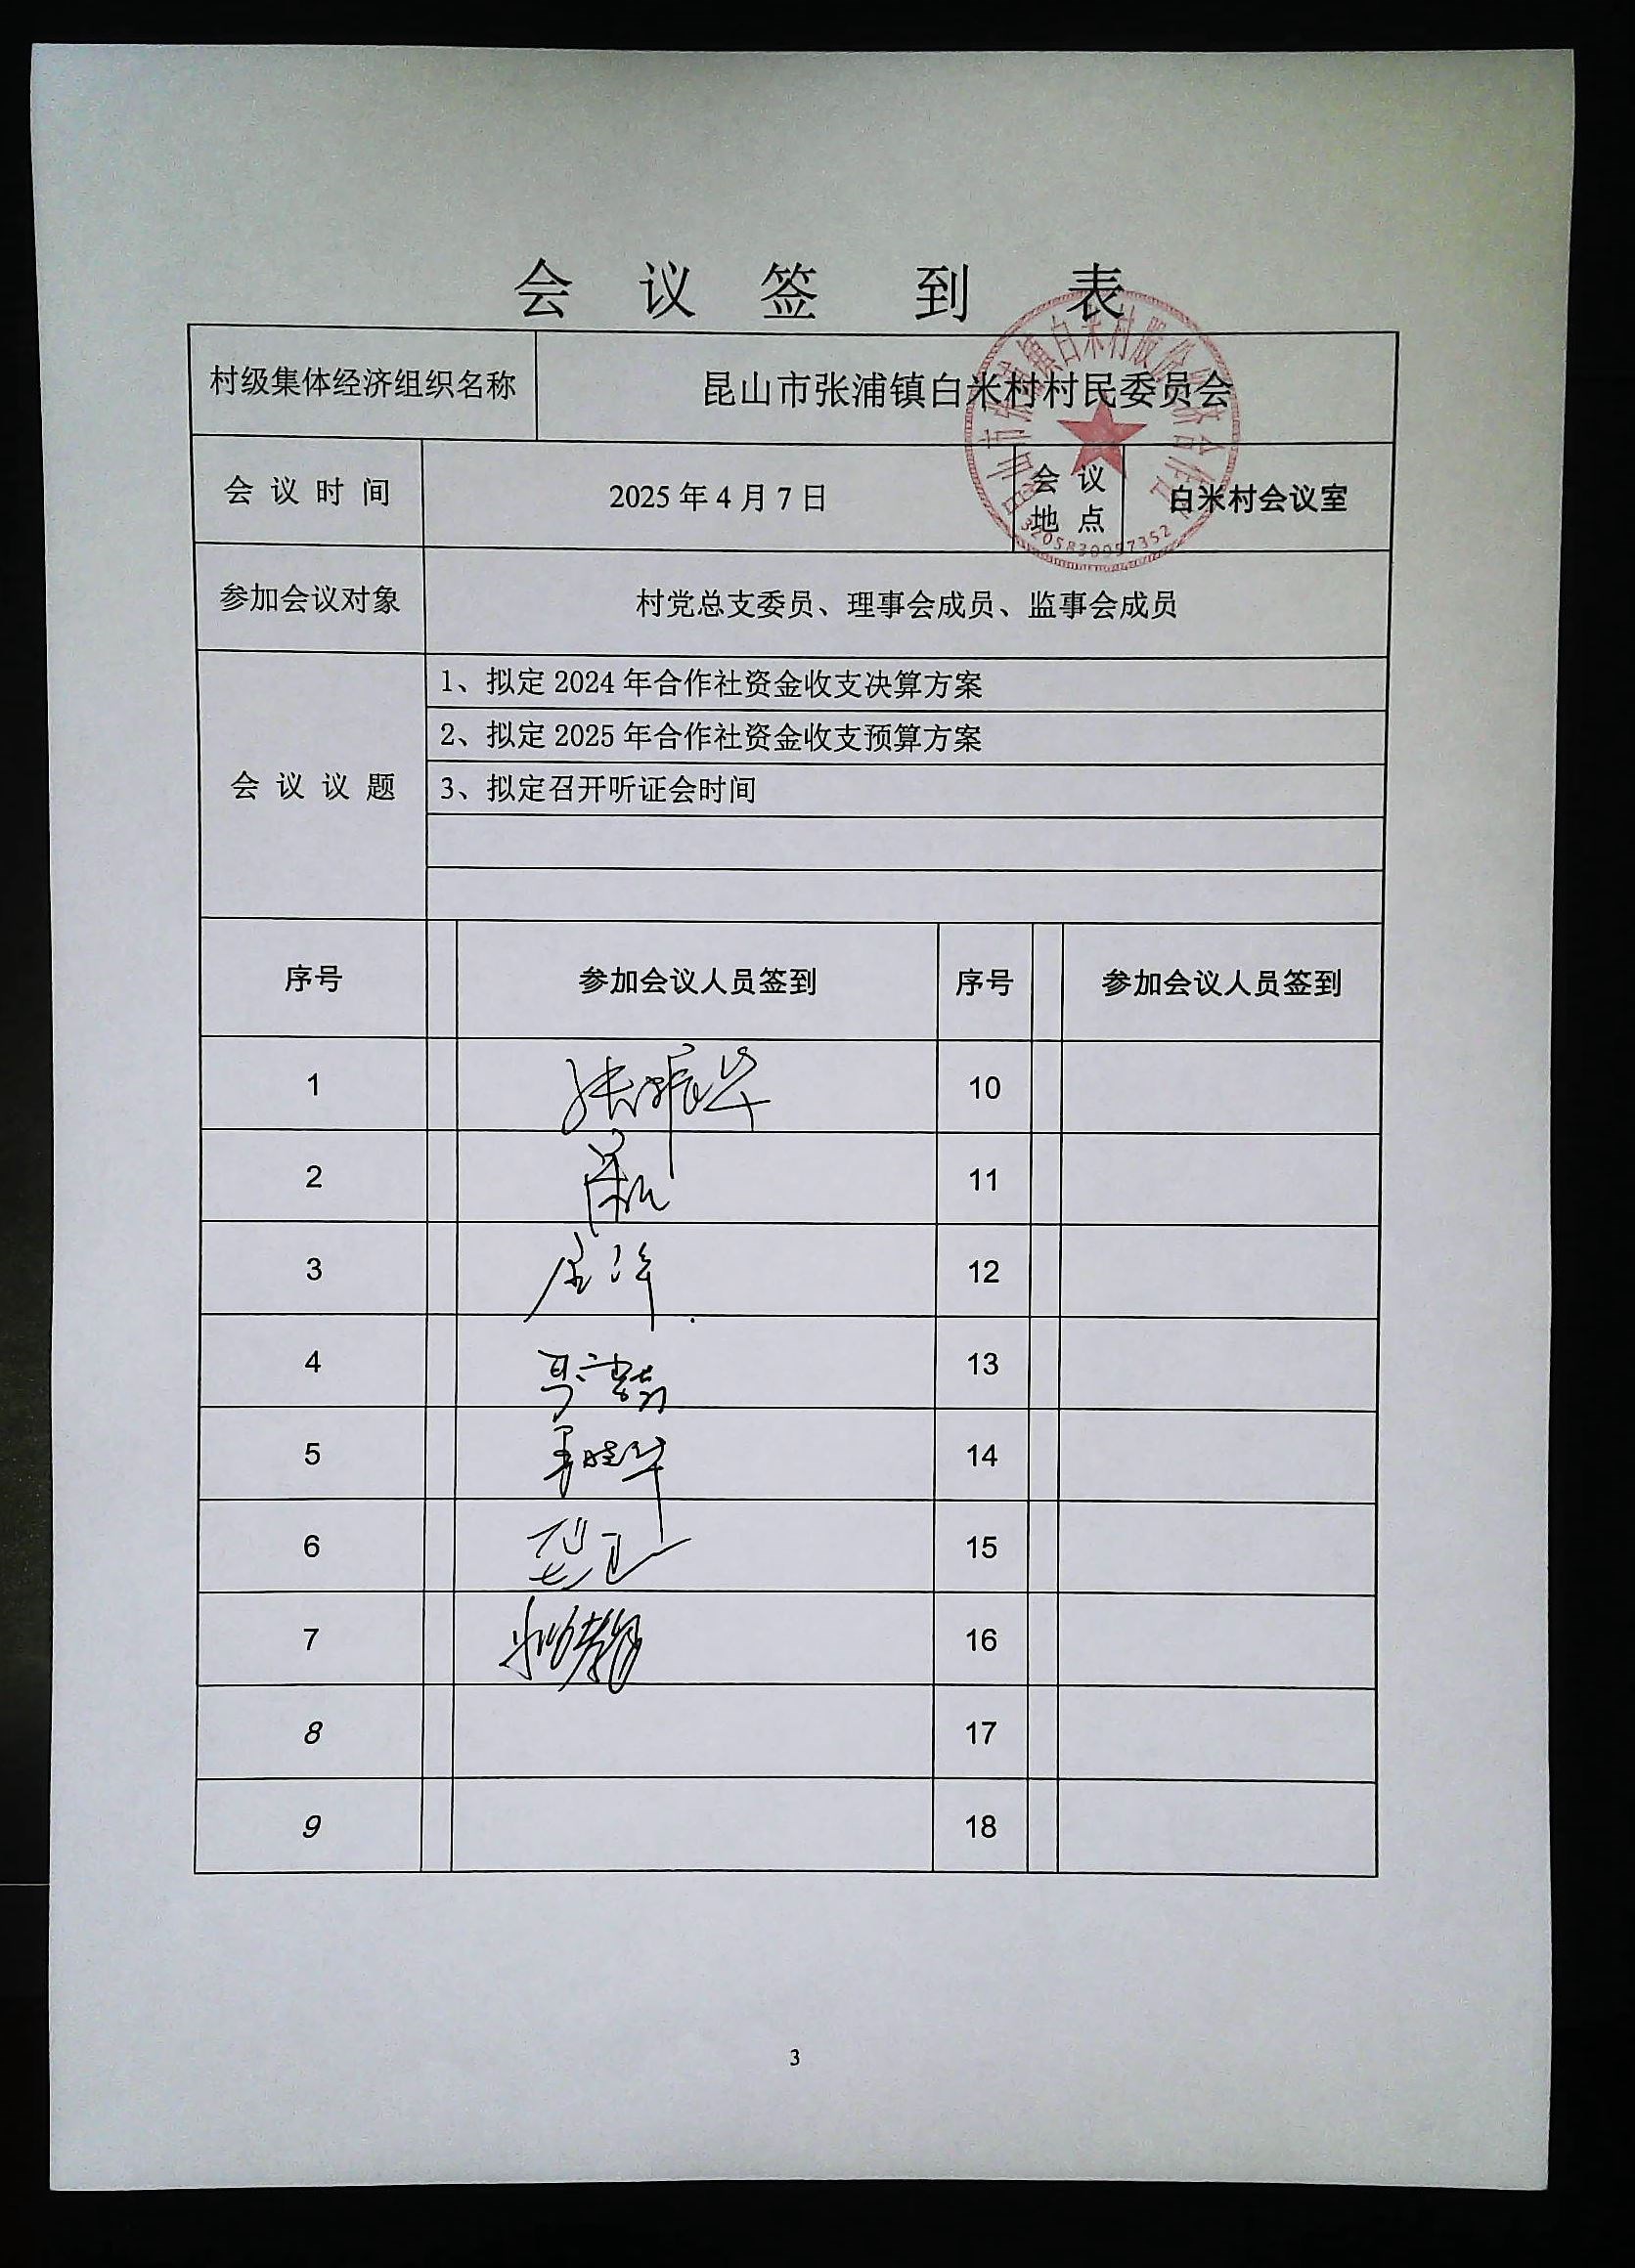 会 议 签 到 表
村级集体经济组织名称 昆山市张浦镇白米村村民委员会
会 议 时 间 2025 年 4 月 7 日 会 议 地 点 白米村会议室
3205830097352
参加会议对象 村党总支委员、理事会成员、监事会成员
会 议 议 题
1、拟定 2024 年合作社资金收支决算方案
2、拟定 2025 年合作社资金收支预算方案
3、拟定召开听证会时间
序号 参加会议人员签到 序号 参加会议人员签到
1 张振华 10
2 11
3 12
4 13
5 14
6 15
7 16
8 17
9 18
3